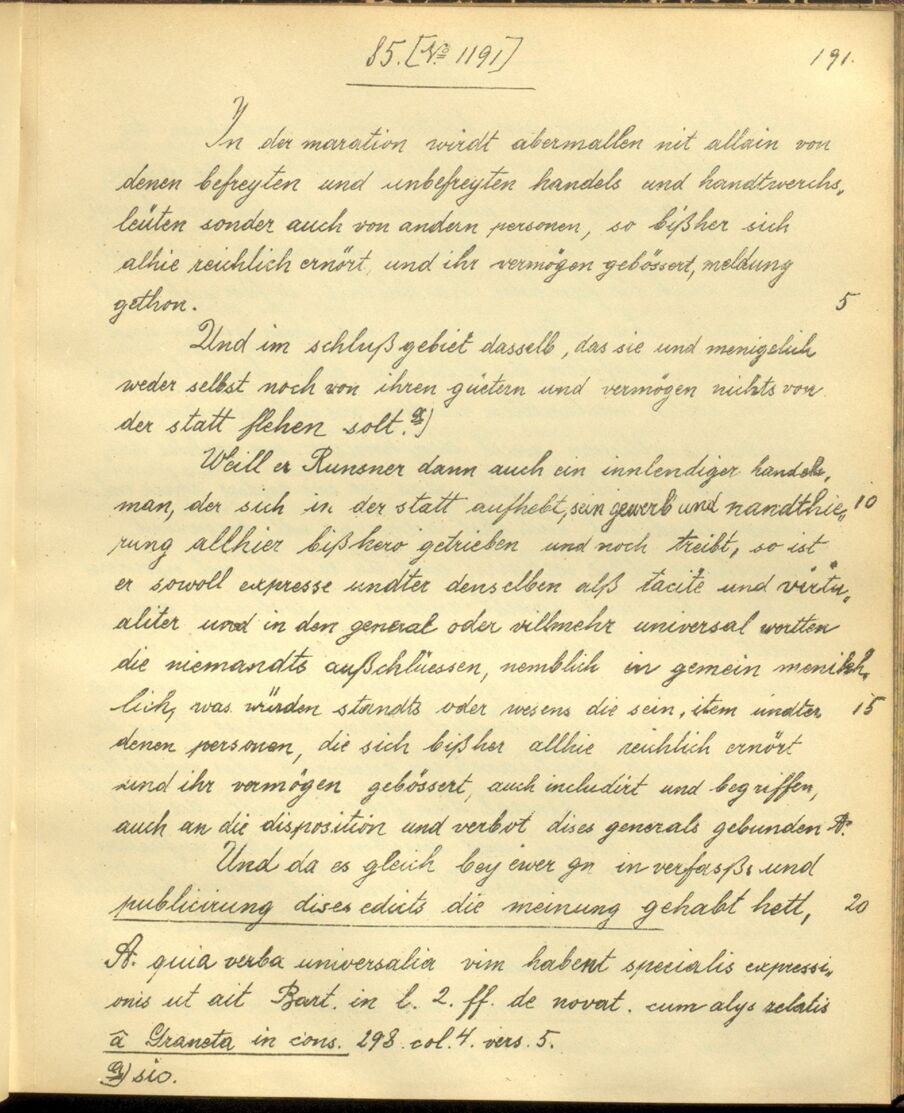 85. [№ 1191]
191.
In der maration wirdt abermallen nit allain von
denen befreyten und unbefreyten handels und handtwerchs„
leüten sonder auch von andern personen, so bißher sich
alhie reichlich ernört, und ihr vermögen gebössert, meldung
gethon. 5
Und im schluß gebiet dasselb, das sie und menigelich
weder selbst noch von ihren güetern und vermögen nichts von
der statt flehen solt. a)
Weill er Runsner dann auch ein innlendiger handels„
man, der sich in der statt aufhebt, sein gewerb und handthie„ 10
rung allhier bißhero getrieben und noch treibt, so ist
er sowoll expresse undter denselben alß tacite und virtu„
aliter und in den general oder villmehr universal wortten
die niemandts außchlüessen, nemblich in gemein menikh„
lich, was würden standts oder wesens die sein, item undter 15
denen personen, die sich bißher allhie reichlich ernört
und ihr vermögen gebössert, auch includirt und begriffen,
auch an die disposition und verbot dises generals gebunden A.
Und da es gleich bey ewer gn in verfasß: und
publicirung dises edicts die meinung gehabt hett, 20
A. quia verba universalia vim habent specialis expressi„
onis ut ait Bart. in l. 2. ff. de novat. cum alys relatis
â Graneta in cons. 298 col. 4. vers. 5.
a) sic.